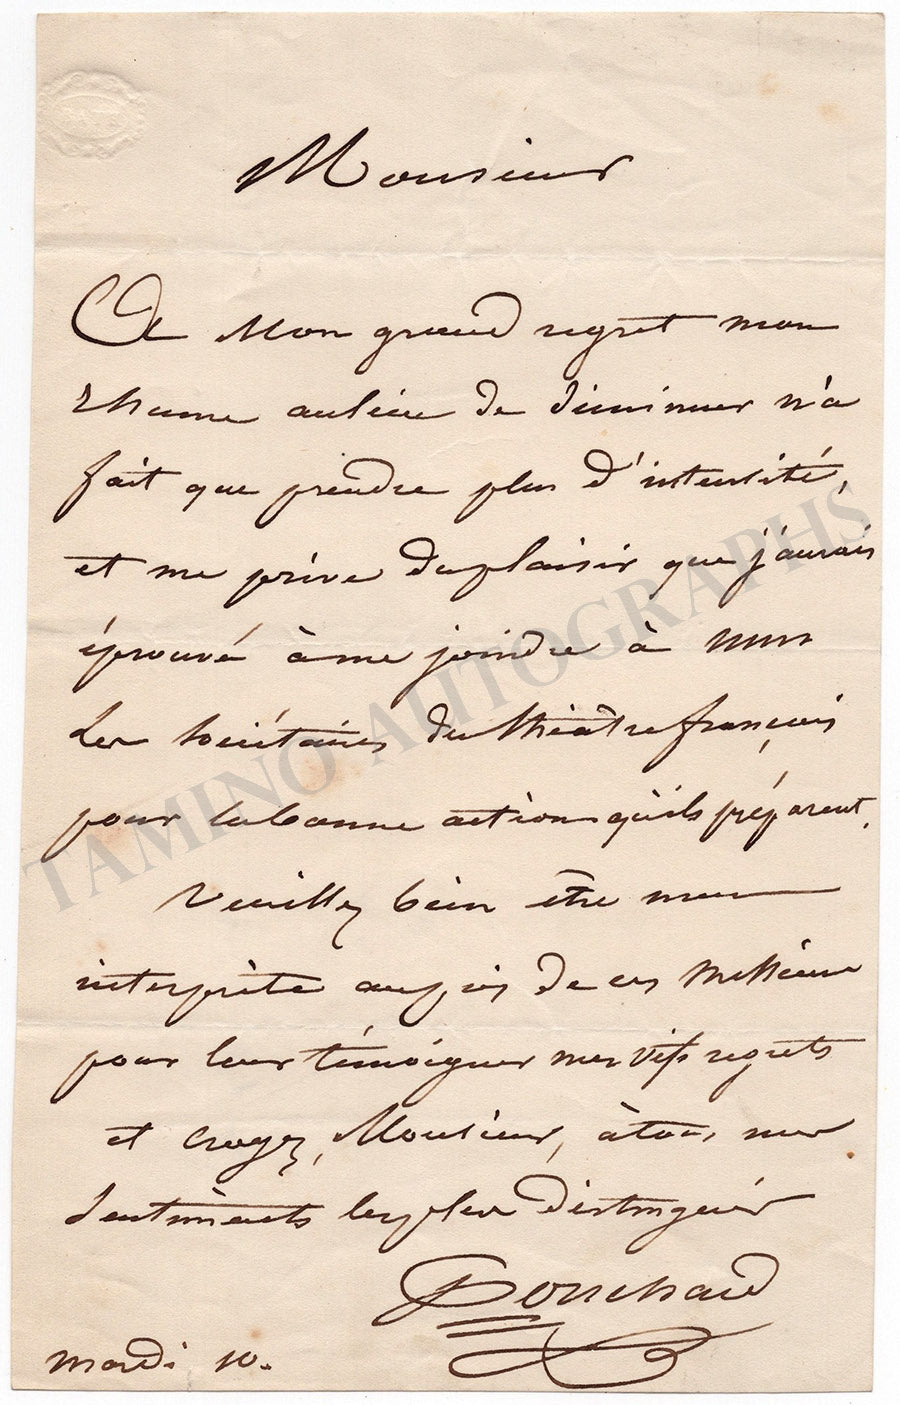 Monsieur
A Mon grand regret mon
rhume aulieu de diminuer n'a
fait que prendre plus d'intensité,
et me prive du plaisir que j'aurais
éprouvé à me joindre à MM
Les Sociétaires du théâtre français
pour la bonne action qu'ils préparent.
Veuillez bien être mon
interprète auprès de ces Messieurs
pour leur témoigner mes vifs regrets
et croyez, Monsieur, à tous mes
Sentiments les plus distingués
Ponchard
mardi 10.
TAMINO AUTOGRAPHS